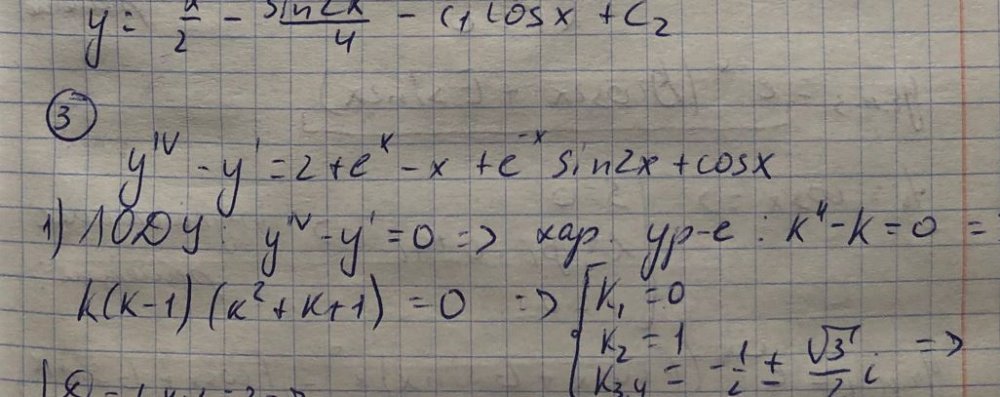 y = x/2 - sin2x/4 - C₁ cosx + C₂
3
y^IV - y' = 2 + e^x - x + e^-x sin2x + cosx
1) ЛОДУ: y^IV - y' = 0 => хар. ур-е: k⁴ - k = 0 =
k(k-1)(k²+k+1) = 0 => [k₁ = 0
k₂ = 1
k₃,₄ = -1/2 ± √3/2 i =>